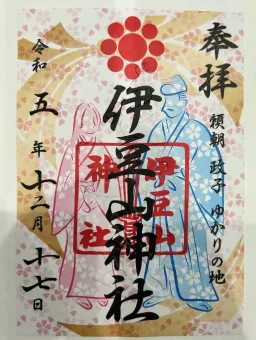 奉拝
頼朝 政子 ゆかりの地
伊豆山神社
伊豆山
神社
令和五年十二月十七日